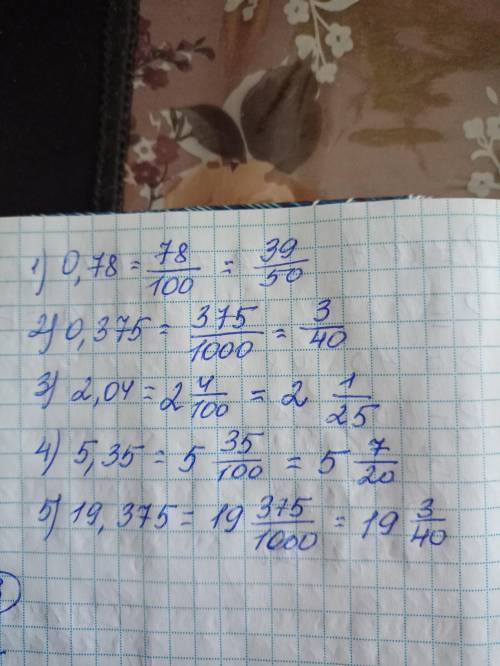 1) 0,78 = 78/100 = 39/50
2) 0,375 = 375/1000 = 3/40
3) 2,04 = 2 4/100 = 2 1/25
4) 5,35 = 5 35/100 = 5 7/20
5) 19,375 = 19 375/1000 = 19 3/40